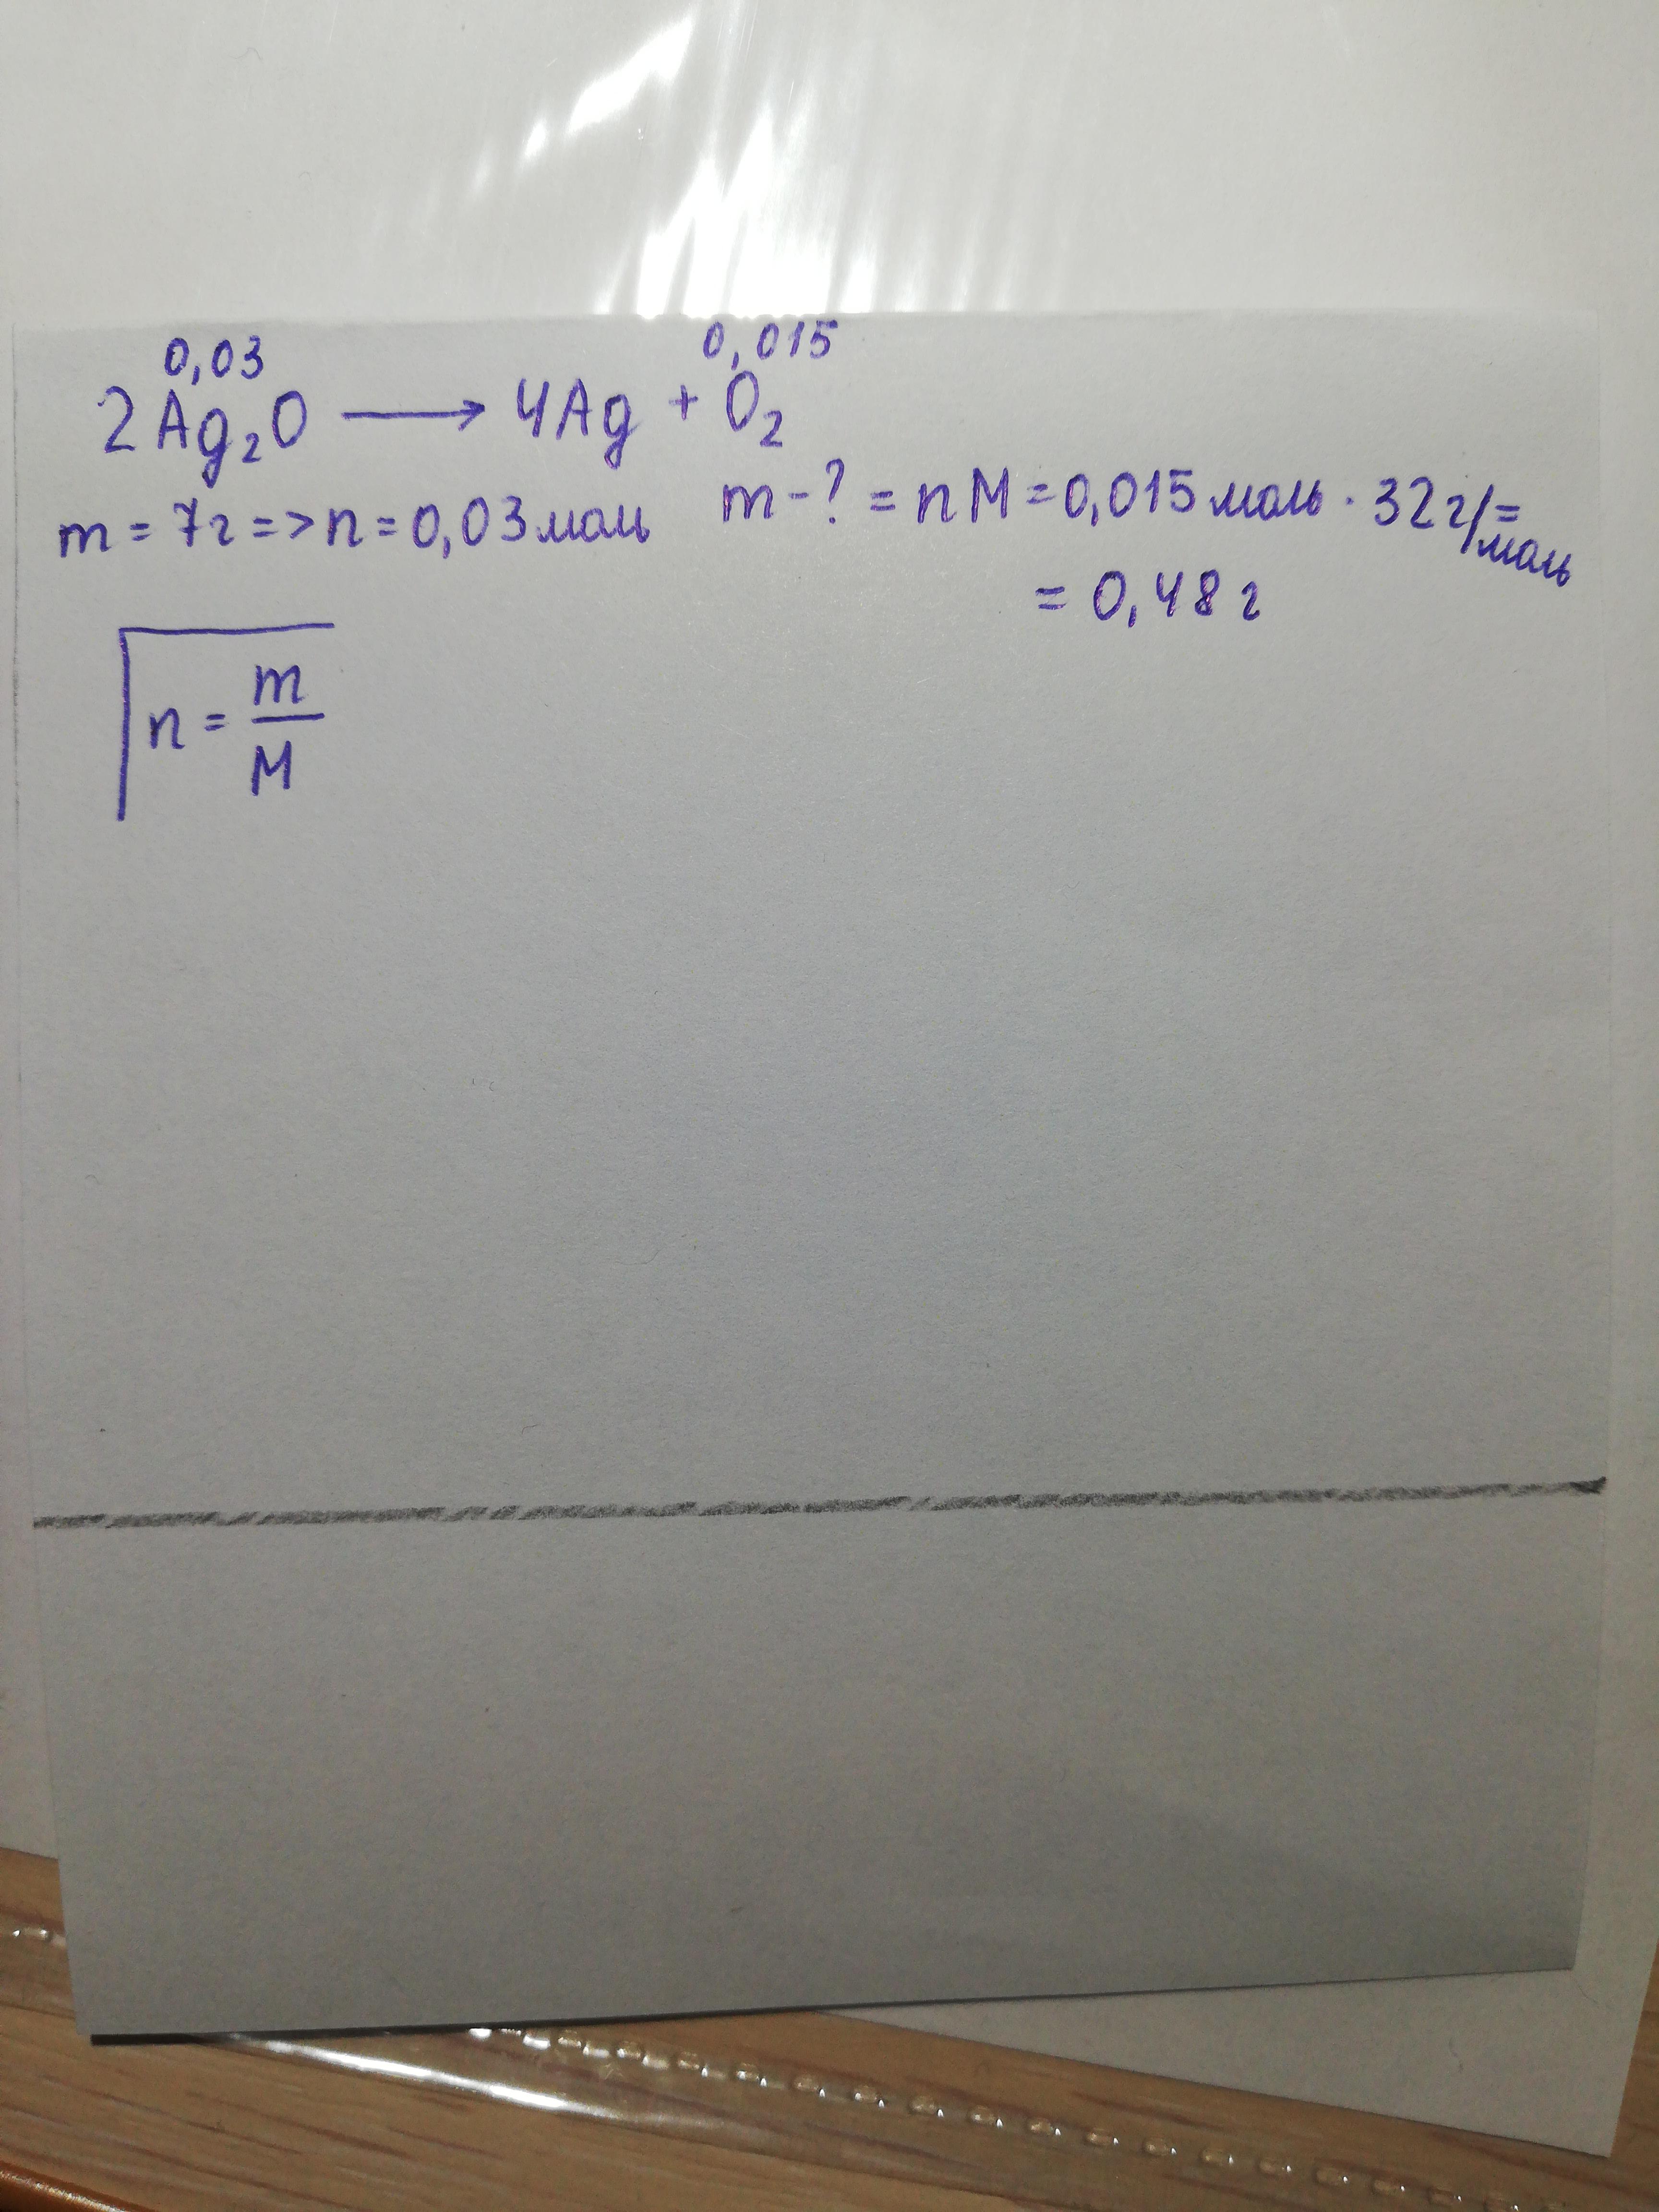 0,03 0,015
2Ag₂O → 4Ag + O₂
m = 7г => n = 0,03 моль m - ? = nM = 0,015 моль · 32 г/моль =
= 0,48 г
n = m/M